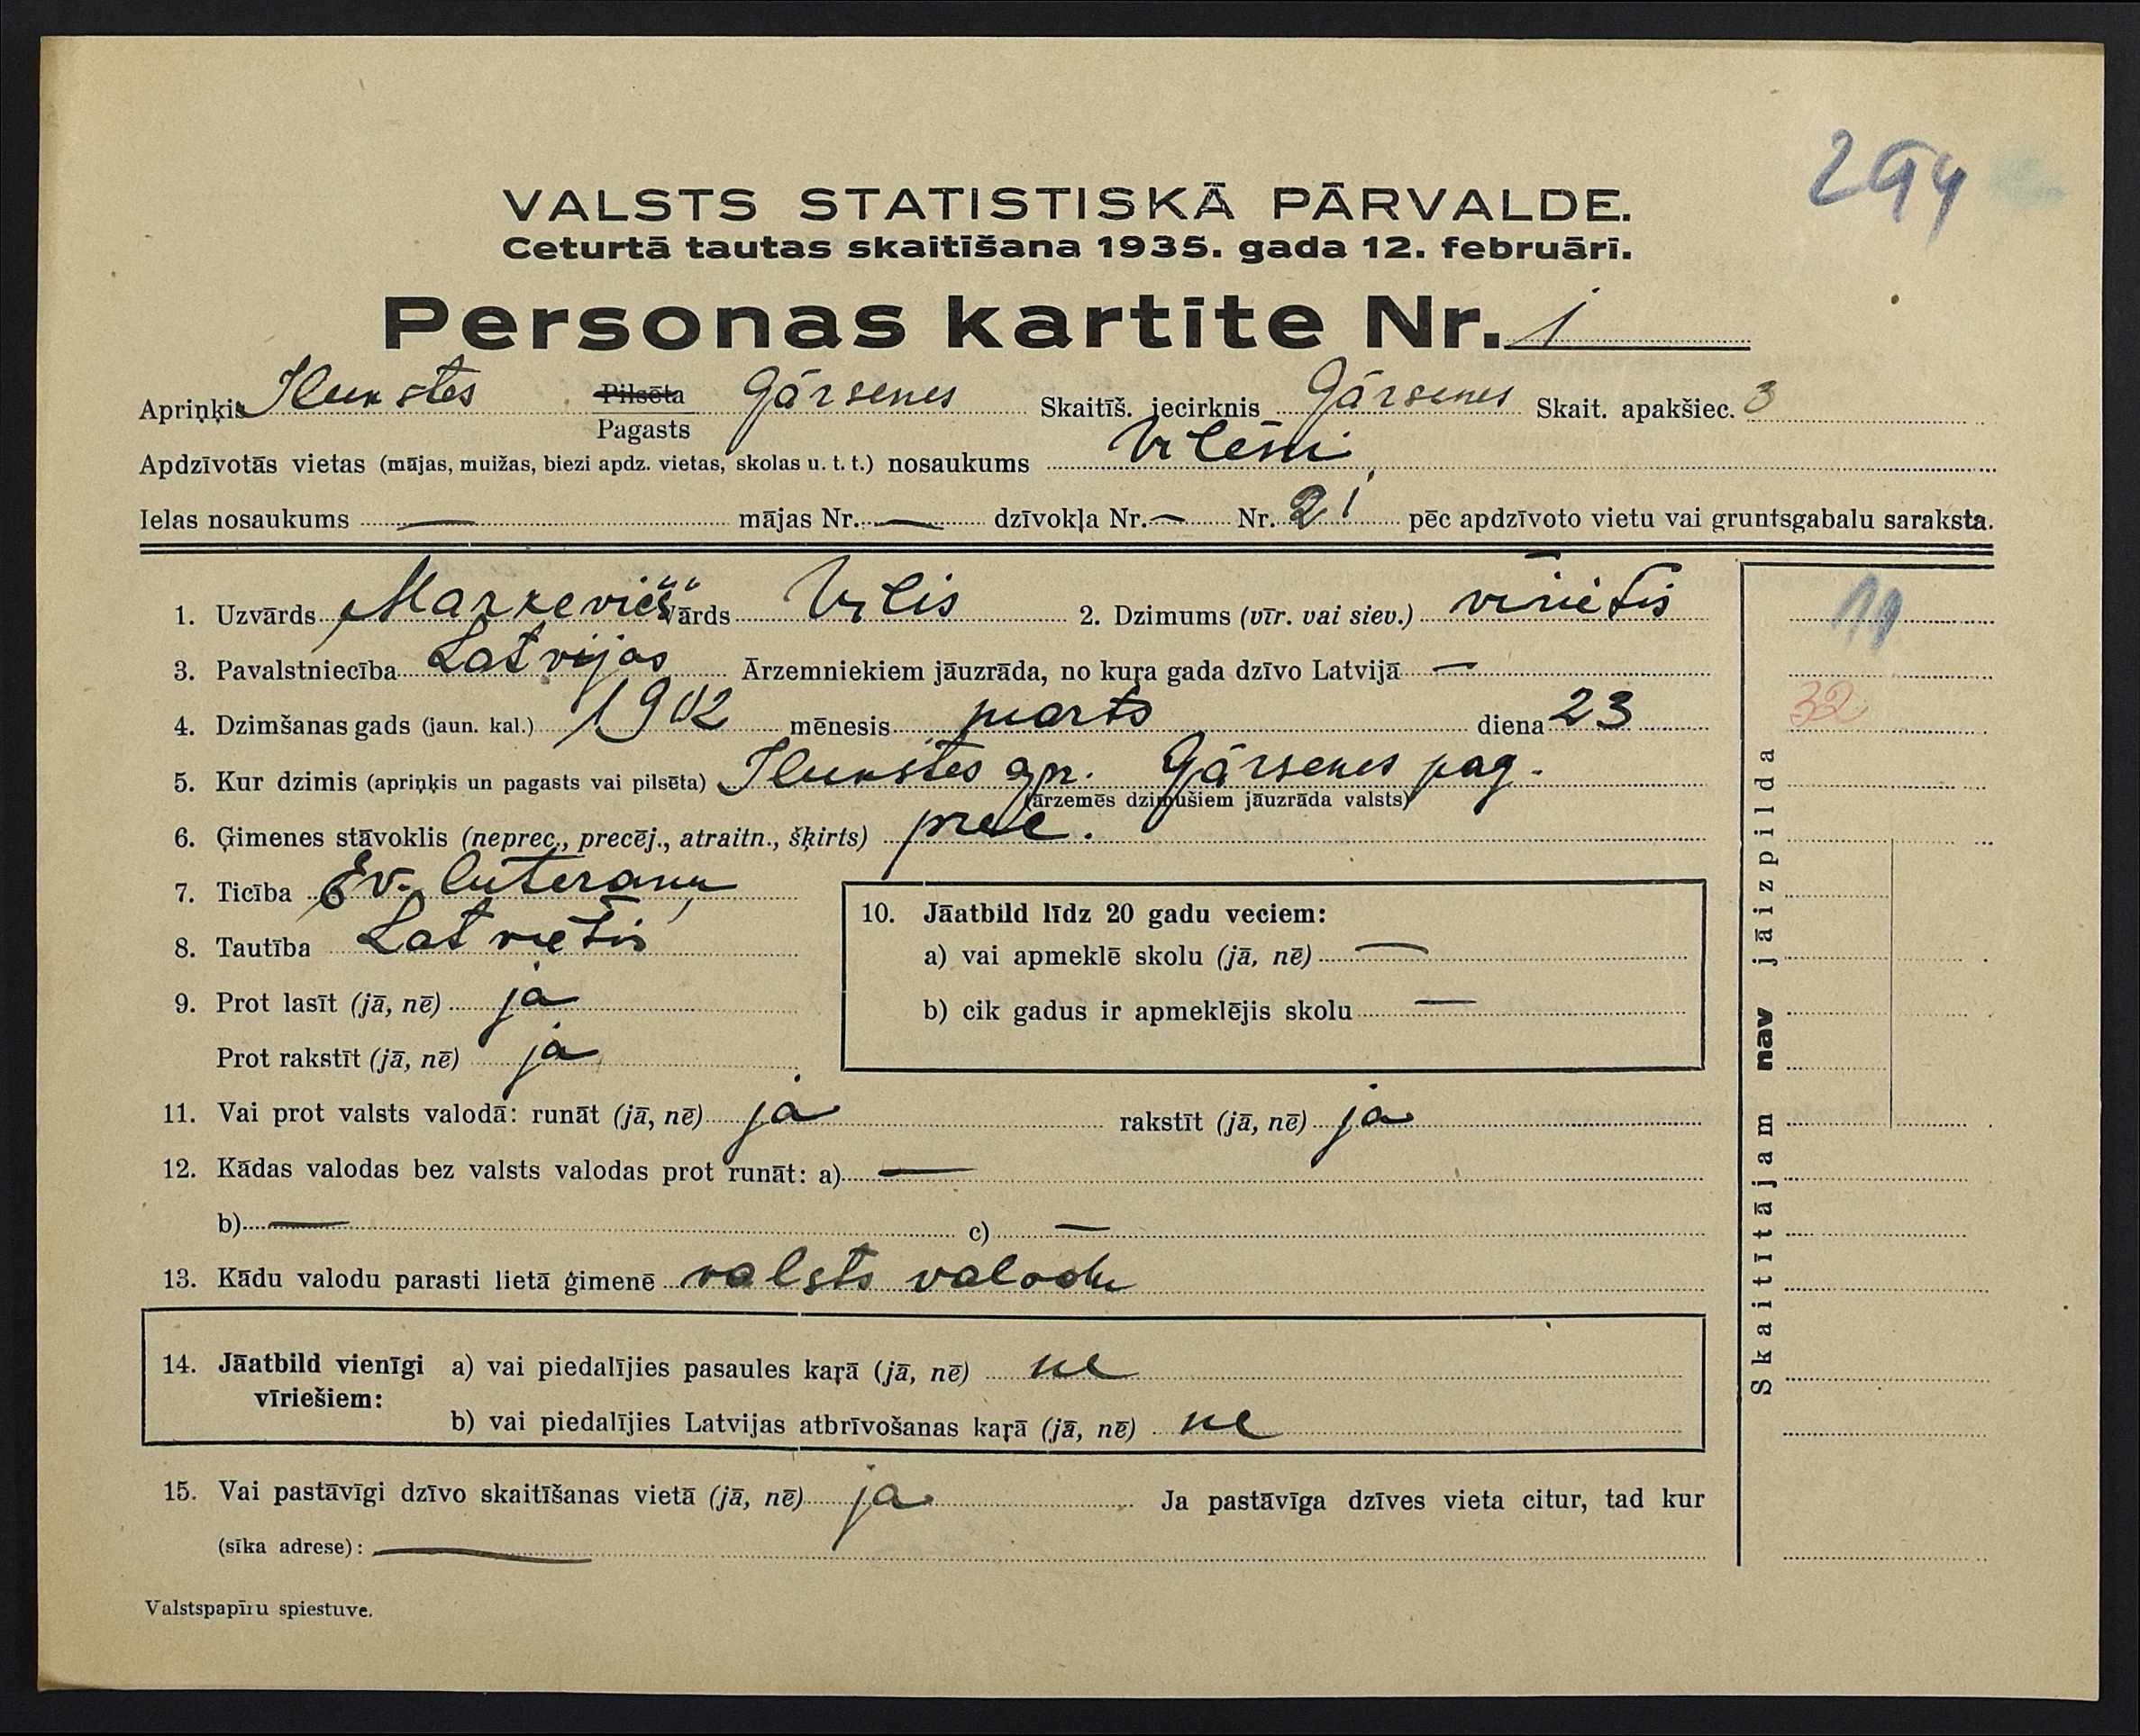 294
VALSTS STATISTISKĀ PĀRVALDE.
Ceturtā tautas skaitīšana 1935. gada 12. februārī.
Personas kartīte Nr. 1
Apriņķis Ilukstes Pilsēta Pagasts Gārsenes Skaitīš. iecirknis Gārsenes Skait. apakšiec. 3
Apdzīvotās vietas (mājas, muižas, biezi apdz. vietas, skolas u. t. t.) nosaukums Vilēni
Ielas nosaukums — mājas Nr. — dzīvokļa Nr. — Nr. 21 pēc apdzīvoto vietu vai gruntsgabalu saraksta.
1. Uzvārds Markevičs Vārds Vilis 2. Dzimums (vīr. vai siev.) vīrietis
11
3. Pavalstniecība Latvijas Ārzemniekiem jāuzrāda, no kuŗa gada dzīvo Latvijā —
4. Dzimšanas gads (jaun. kal.) 1902 mēnesis marts diena 23
32
5. Kur dzimis (apriņķis un pagasts vai pilsēta) Ilukstes apr. Gārsenes pag.
(ārzemēs dzimušiem jāuzrāda valsts)
6. Ģimenes stāvoklis (neprec., precēj., atraitn., šķirts) prec.
7. Ticība Ev. luterāņu
8. Tautība Latvietis
9. Prot lasīt (jā, nē) jā
Prot rakstīt (jā, nē) jā
10. Jāatbild līdz 20 gadu veciem:
a) vai apmeklē skolu (jā, nē) —
b) cik gadus ir apmeklējis skolu —
11. Vai prot valsts valodā: runāt (jā, nē) jā rakstīt (jā, nē) ja
12. Kādas valodas bez valsts valodas prot runāt: a) —
b) — c) —
13. Kādu valodu parasti lietā ģimenē valsts valodu
14. Jāatbild vienīgi vīriešiem: a) vai piedalījies pasaules kaŗā (jā, nē) ne
b) vai piedalījies Latvijas atbrīvošanas kaŗā (jā, nē) ne
15. Vai pastāvīgi dzīvo skaitīšanas vietā (jā, nē) ja Ja pastāvīga dzīves vieta citur, tad kur
(sīka adrese): —
Skaitītājam nav jāizpilda
Valstspapīru spiestuve.